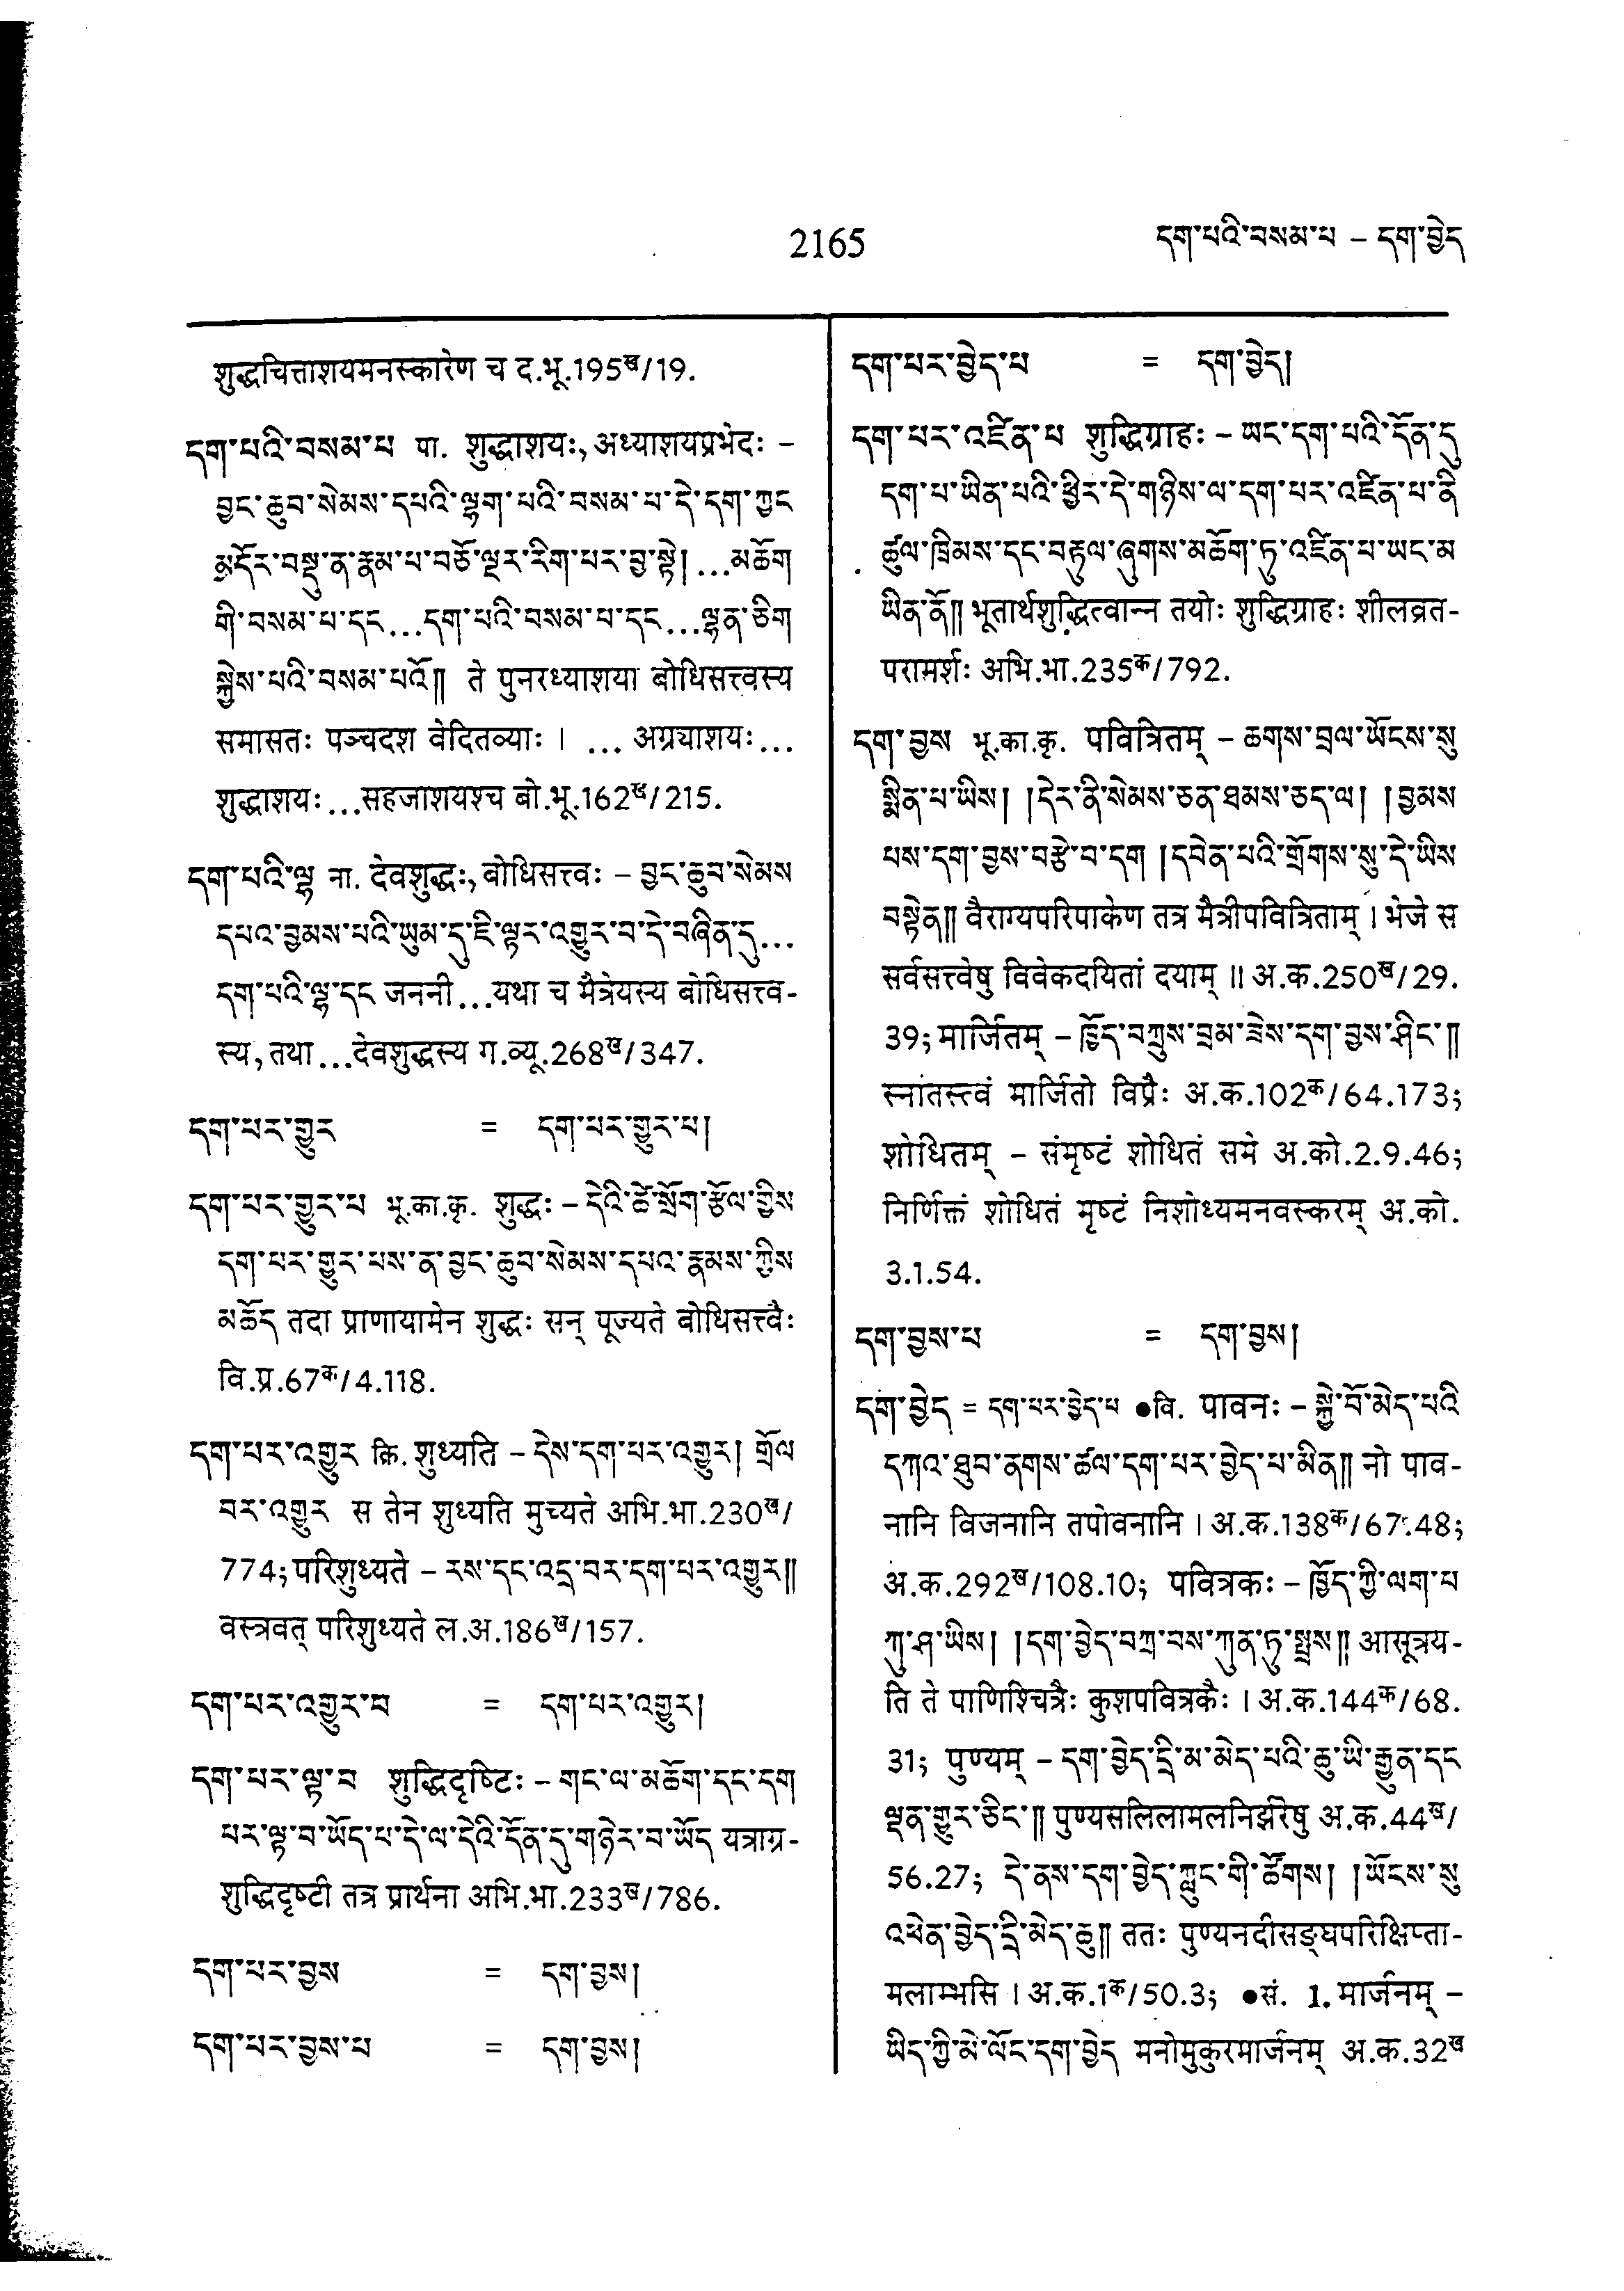 2165
དག་པའི་བསམ་པ – དག་བྱེད
शुद्धचित्ताशयमनस्कारेण च द.भू.195ख/19.
དག་པའི་བསམ་པ पा. शुद्धाशयः, अध्याशयप्रभेदः –
བྱང་ཆུབ་སེམས་དཔའི་ལྷག་པའི་བསམ་པ་དེ་དག་ཀྱང
མདོར་བསྡུ་ན་རྣམ་པ་བཅོ་ལྔར་རིག་པར་བྱ་སྟེ། ...མཆོག
གི་བསམ་པ་དང...དག་པའི་བསམ་པ་དང...ལྷན་ཅིག
སྐྱེས་པའི་བསམ་པའོ༎ ते पुनरध्याशया बोधिसत्त्वस्य
समासतः पञ्चदश वेदितव्याः । ... अग्र्याशयः...
शुद्धाशयः...सहजाशयश्च बो.भू.162ख/215.
དག་པའི་ལྷ ना. देवशुद्धः, बोधिसत्त्वः – བྱང་ཆུབ་སེམས
དཔའ་བྱམས་པའི་ཡུམ་དུ་ཇི་ལྟར་འགྱུར་བ་དེ་བཞིན་དུ...
དག་པའི་ལྷ་དང जननी...यथा च मैत्रेयस्य बोधिसत्त्व-
स्य, तथा...देवशुद्धस्य ग.व्यू.268ख/347.
དག་པར་གྱུར = དག་པར་གྱུར་པ།
དག་པར་གྱུར་པ भू.का.कृ. शुद्धः – དེའི་ཚེ་སྲོག་རྩོལ་གྱིས
དག་པར་གྱུར་པས་ན་བྱང་ཆུབ་སེམས་དཔའ་རྣམས་ཀྱིས
མཆོད तदा प्राणायामेन शुद्धः सन् पूज्यते बोधिसत्त्वैः
वि.प्र.67क/4.118.
དག་པར་འགྱུར क्रि. शुध्यति – དེས་དག་པར་འགྱུར། གྲོལ
བར་འགྱུར स तेन शुध्यति मुच्यते अभि.भा.230ख/
774; परिशुध्यते – རས་དང་འདྲ་བར་དག་པར་འགྱུར༎
वस्त्रवत् परिशुध्यते ल.अ.186ख/157.
དག་པར་འགྱུར་བ = དག་པར་འགྱུར།
དག་པར་ལྟ་བ शुद्धिदृष्टिः – གང་ལ་མཆོག་དང་དག
པར་ལྟ་བ་ཡོད་པ་དེ་ལ་དེའི་དོན་དུ་གཉེར་བ་ཡོད यत्राग्र-
शुद्धिदृष्टी तत्र प्रार्थना अभि.भा.233ख/786.
དག་པར་བྱས = དག་བྱས།
དག་པར་བྱས་པ = དག་བྱས།
དག་པར་བྱེད་པ = དག་བྱེད།
དག་པར་འཛིན་པ शुद्धिग्राहः – ཡང་དག་པའི་དོན་དུ
དག་པ་ཡིན་པའི་ཕྱིར་དེ་གཉིས་ལ་དག་པར་འཛིན་པ་ནི
ཚུལ་ཁྲིམས་དང་བརྟུལ་ཞུགས་མཆོག་ཏུ་འཛིན་པ་ཡང་མ
ཡིན་ནོ༎ भूतार्थशुद्धित्वान्न तयोः शुद्धिग्राहः शीलव्रत-
परामर्शः अभि.भा.235क/792.
དག་བྱས भू.का.कृ. पवित्रितम् – ཆགས་བྲལ་ཡོངས་སུ
སྨིན་པ་ཡིས། །དེར་ནི་སེམས་ཅན་ཐམས་ཅད་ལ། །བྱམས
པས་དག་བྱས་བརྩེ་བ་དག །དབེན་པའི་གྲོགས་སུ་དེ་ཡིས
བསྟེན༎ वैराग्यपरिपाकेण तत्र मैत्रीपवित्रिताम् । भेजे स
सर्वसत्त्वेषु विवेकदयितां दयाम् ॥ अ.क.250ख/29.
39; मार्जितम् – ཁྱོད་བཀྲུས་བྲམ་ཟེས་དག་བྱས་ཤིང་༎
स्नातस्त्वं मार्जितो विप्रैः अ.क.102क/64.173;
शोधितम् – संमृष्टं शोधितं समे अ.को.2.9.46;
निर्णिक्तं शोधितं मृष्टं निशोध्यमनवस्करम् अ.को.
3.1.54.
དག་བྱས་པ = དག་བྱས།
དག་བྱེད = དག་པར་བྱེད་པ ●वि. पावनः – སྐྱེ་བོ་མེད་པའི
དཀའ་ཐུབ་ནགས་ཚལ་དག་པར་བྱེད་པ་མིན༎ नो पाव-
नानि विजनानि तपोवनानि । अ.क.138क/67.48;
अ.क.292ख/108.10; पवित्रकः – ཁྱོད་ཀྱི་ལག་པ
ཀུ་ཤ་ཡིས། །དག་བྱེད་བཀྲ་བས་ཀུན་ཏུ་སྤྲས༎ आसूत्रय-
ति ते पाणिश्चित्रैः कुशपवित्रकैः । अ.क.144क/68.
31; पुण्यम् – དག་བྱེད་དྲི་མ་མེད་པའི་ཆུ་ཡི་རྒྱུན་དང
ལྡན་གྱུར་ཅིང་༎ पुण्यसलिलामलनिर्झरेषु अ.क.44ख/
56.27; དེ་ནས་དག་བྱེད་ཀླུང་གི་ཚོགས། །ཡོངས་སུ
འཕེན་བྱེད་དྲི་མེད་ཆུ༎ ततः पुण्यनदीसङ्घपरिक्षिप्ता-
मलाम्भसि । अ.क.1क/50.3; ●सं. 1. मार्जनम् –
ཡིད་ཀྱི་མེ་ལོང་དག་བྱེད मनोमुकुरमार्जनम् अ.क.32ख